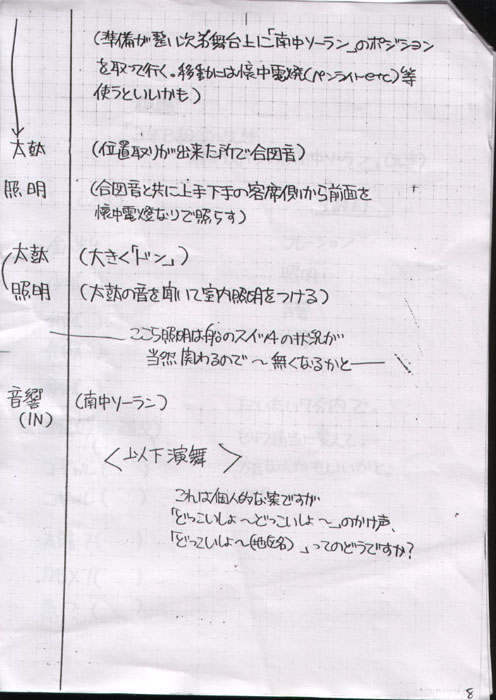 (準備が整い次第舞台上に「南中ソーラン」のポジション
を取って行く。移動には懐中電燈(ペンライトetc)等
使うといいかも)
太鼓 (位置取りが出来た所で合図音)
照明 (合図音と共に上手下手の客席側から前面を
懐中電燈なりで照らす)
太鼓 (大きく「ドン」)
照明 (太鼓の音を聞いて室内照明をつける)
ここら照明は船のスイッチの状況が
当然関わるので〜無くなるかと
音響 (南中ソーラン)
(IN)
<以下演舞>
これは個人的な案ですが
「どっこいしょ〜どっこいしょ〜」のかけ声、
「どっこいしょ〜(地区名)」ってのどうですか?
8